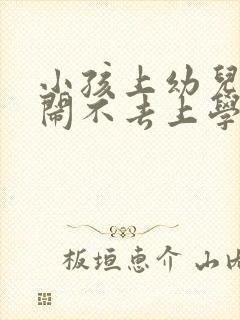 小孩上幼兒
鬧不去上學
板垣恵介 山内